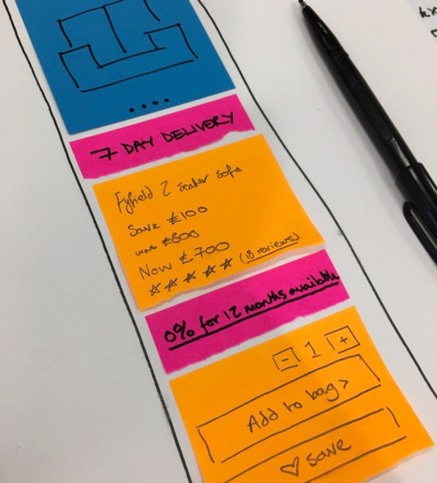 7 DAY DELIVERY
Fyfield 2 seater sofa
Save £100
was £800
Now £700
(18 reviews)
0% for 12 months available
- 1 +
Add to bag >
save